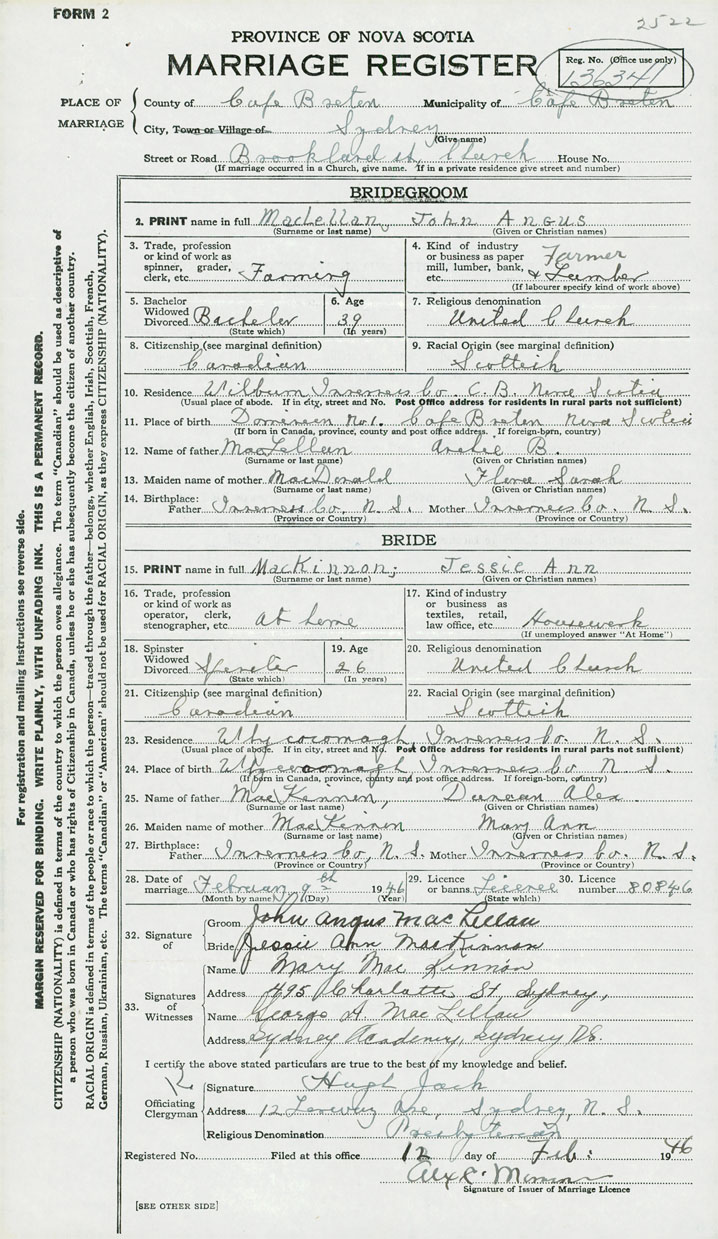 FORM 2
2522
PROVINCE OF NOVA SCOTIA
MARRIAGE REGISTER
Reg. No. (Office use only)
136341
PLACE OF MARRIAGE
County of Cape Breton Municipality of Cape Breton
City, Town or Village of Sydney
(Give name)
Street or Road Brookland St, Church House No.
(If marriage occurred in a Church, give name. If in a private residence give street and number)
BRIDEGROOM
2. PRINT name in full MacLellan, John Angus
(Surname or last name) (Given or Christian names)
3. Trade, profession or kind of work as spinner, grader, clerk, etc. Farming
4. Kind of industry or business as paper mill, lumber, bank, etc. Farmer & Lumber
(If labourer specify kind of work above)
5. Bachelor Widowed Divorced Bachelor
(State which)
6. Age 39
(In years)
7. Religious denomination United Church
8. Citizenship (see marginal definition) Canadian
9. Racial Origin (see marginal definition) Scottish
10. Residence Wilburn Inverness Co. C.B. Nova Scotia
(Usual place of abode. If in city, street and No. Post Office address for residents in rural parts not sufficient)
11. Place of birth Dominion No. 1. Cape Breton Nova Scotia
(If born in Canada, province, county and post office address. If foreign-born, country)
12. Name of father MacLellan Archie B.
(Surname or last name) (Given or Christian names)
13. Maiden name of mother MacDonald Flora Sarah
(Surname or last name) (Given or Christian names)
14. Birthplace: Father Inverness Co. N. S. Mother Inverness Co. N. S.
(Province or Country) (Province or Country)
BRIDE
15. PRINT name in full MacKinnon; Jessie Ann
(Surname or last name) (Given or Christian names)
16. Trade, profession or kind of work as operator, clerk, stenographer, etc. at home
17. Kind of industry or business as textiles, retail, law office, etc. Housework
(If unemployed answer "At Home")
18. Spinster Widowed Divorced Spinster
(State which)
19. Age 26
(In years)
20. Religious denomination United Church
21. Citizenship (see marginal definition) Canadian
22. Racial Origin (see marginal definition) Scottish
23. Residence Whycocomagh, Inverness Co. N. S.
(Usual place of abode. If in city, street and No. Post Office address for residents in rural parts not sufficient)
24. Place of birth Whycocomagh, Inverness Co N. S.
(If born in Canada, province, county and post office address. If foreign-born, country)
25. Name of father MacKinnon, Duncan Alex
(Surname or last name) (Given or Christian names)
26. Maiden name of mother MacKinnon Mary Ann
(Surname or last name) (Given or Christian names)
27. Birthplace: Father Inverness Co, N. S. Mother Inverness Co. N. S.
(Province or Country) (Province or Country)
28. Date of marriage February 9th 1946
(Month by name) (Day) (Year)
29. Licence or banns Licence
(State which)
30. Licence number 80846
32. Signature of
Groom John Angus MacLellan
Bride Jessie Ann MacKinnon
33. Signatures of Witnesses
Name Mary MacKinnon
Address 495 Charlotte St, Sydney,
Name George A. MacLellan
Address Sydney Academy, Sydney N.S.
I certify the above stated particulars are true to the best of my knowledge and belief.
Officiating Clergyman
Signature Hugh Jack
Address 12 Ave, Sydney, N. S.
Religious Denomination Presbyterian
Registered No. Filed at this office 12 day of Feb: 1946
Alex
Signature of Issuer of Marriage Licence
[SEE OTHER SIDE]
For registration and mailing instructions see reverse side.
MARGIN RESERVED FOR BINDING. WRITE PLAINLY, WITH UNFADING INK. THIS IS A PERMANENT RECORD.
CITIZENSHIP (NATIONALITY) is defined in terms of the country to which the person owes allegiance. The term "Canadian" should be used as descriptive of
a person who was born in Canada or who has rights of Citizenship in Canada, unless he or she has subsequently become the citizen of another country.
RACIAL ORIGIN is defined in terms of the people or race to which the person—traced through the father—belongs, whether English, Irish, Scottish, French,
German, Russian, Ukrainian, etc. The terms "Canadian" or "American" should not be used for RACIAL ORIGIN, as they express CITIZENSHIP (NATIONALITY).